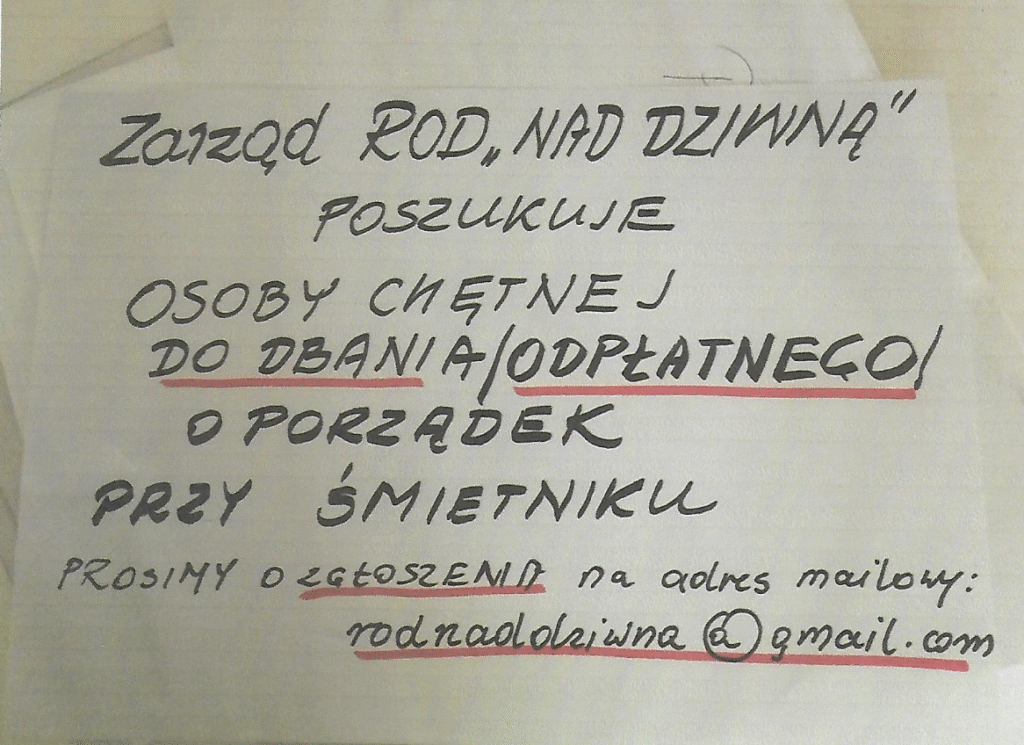 Zarząd ROD „NAD DZIWNĄ”
POSZUKUJE
OSOBY CHĘTNEJ
DO DBANIA/ODPŁATNEGO/
O PORZĄDEK
PRZY ŚMIETNIKU
PROSIMY O ZGŁOSZENIA na adres mailowy:
rodnaddziwna@gmail.com